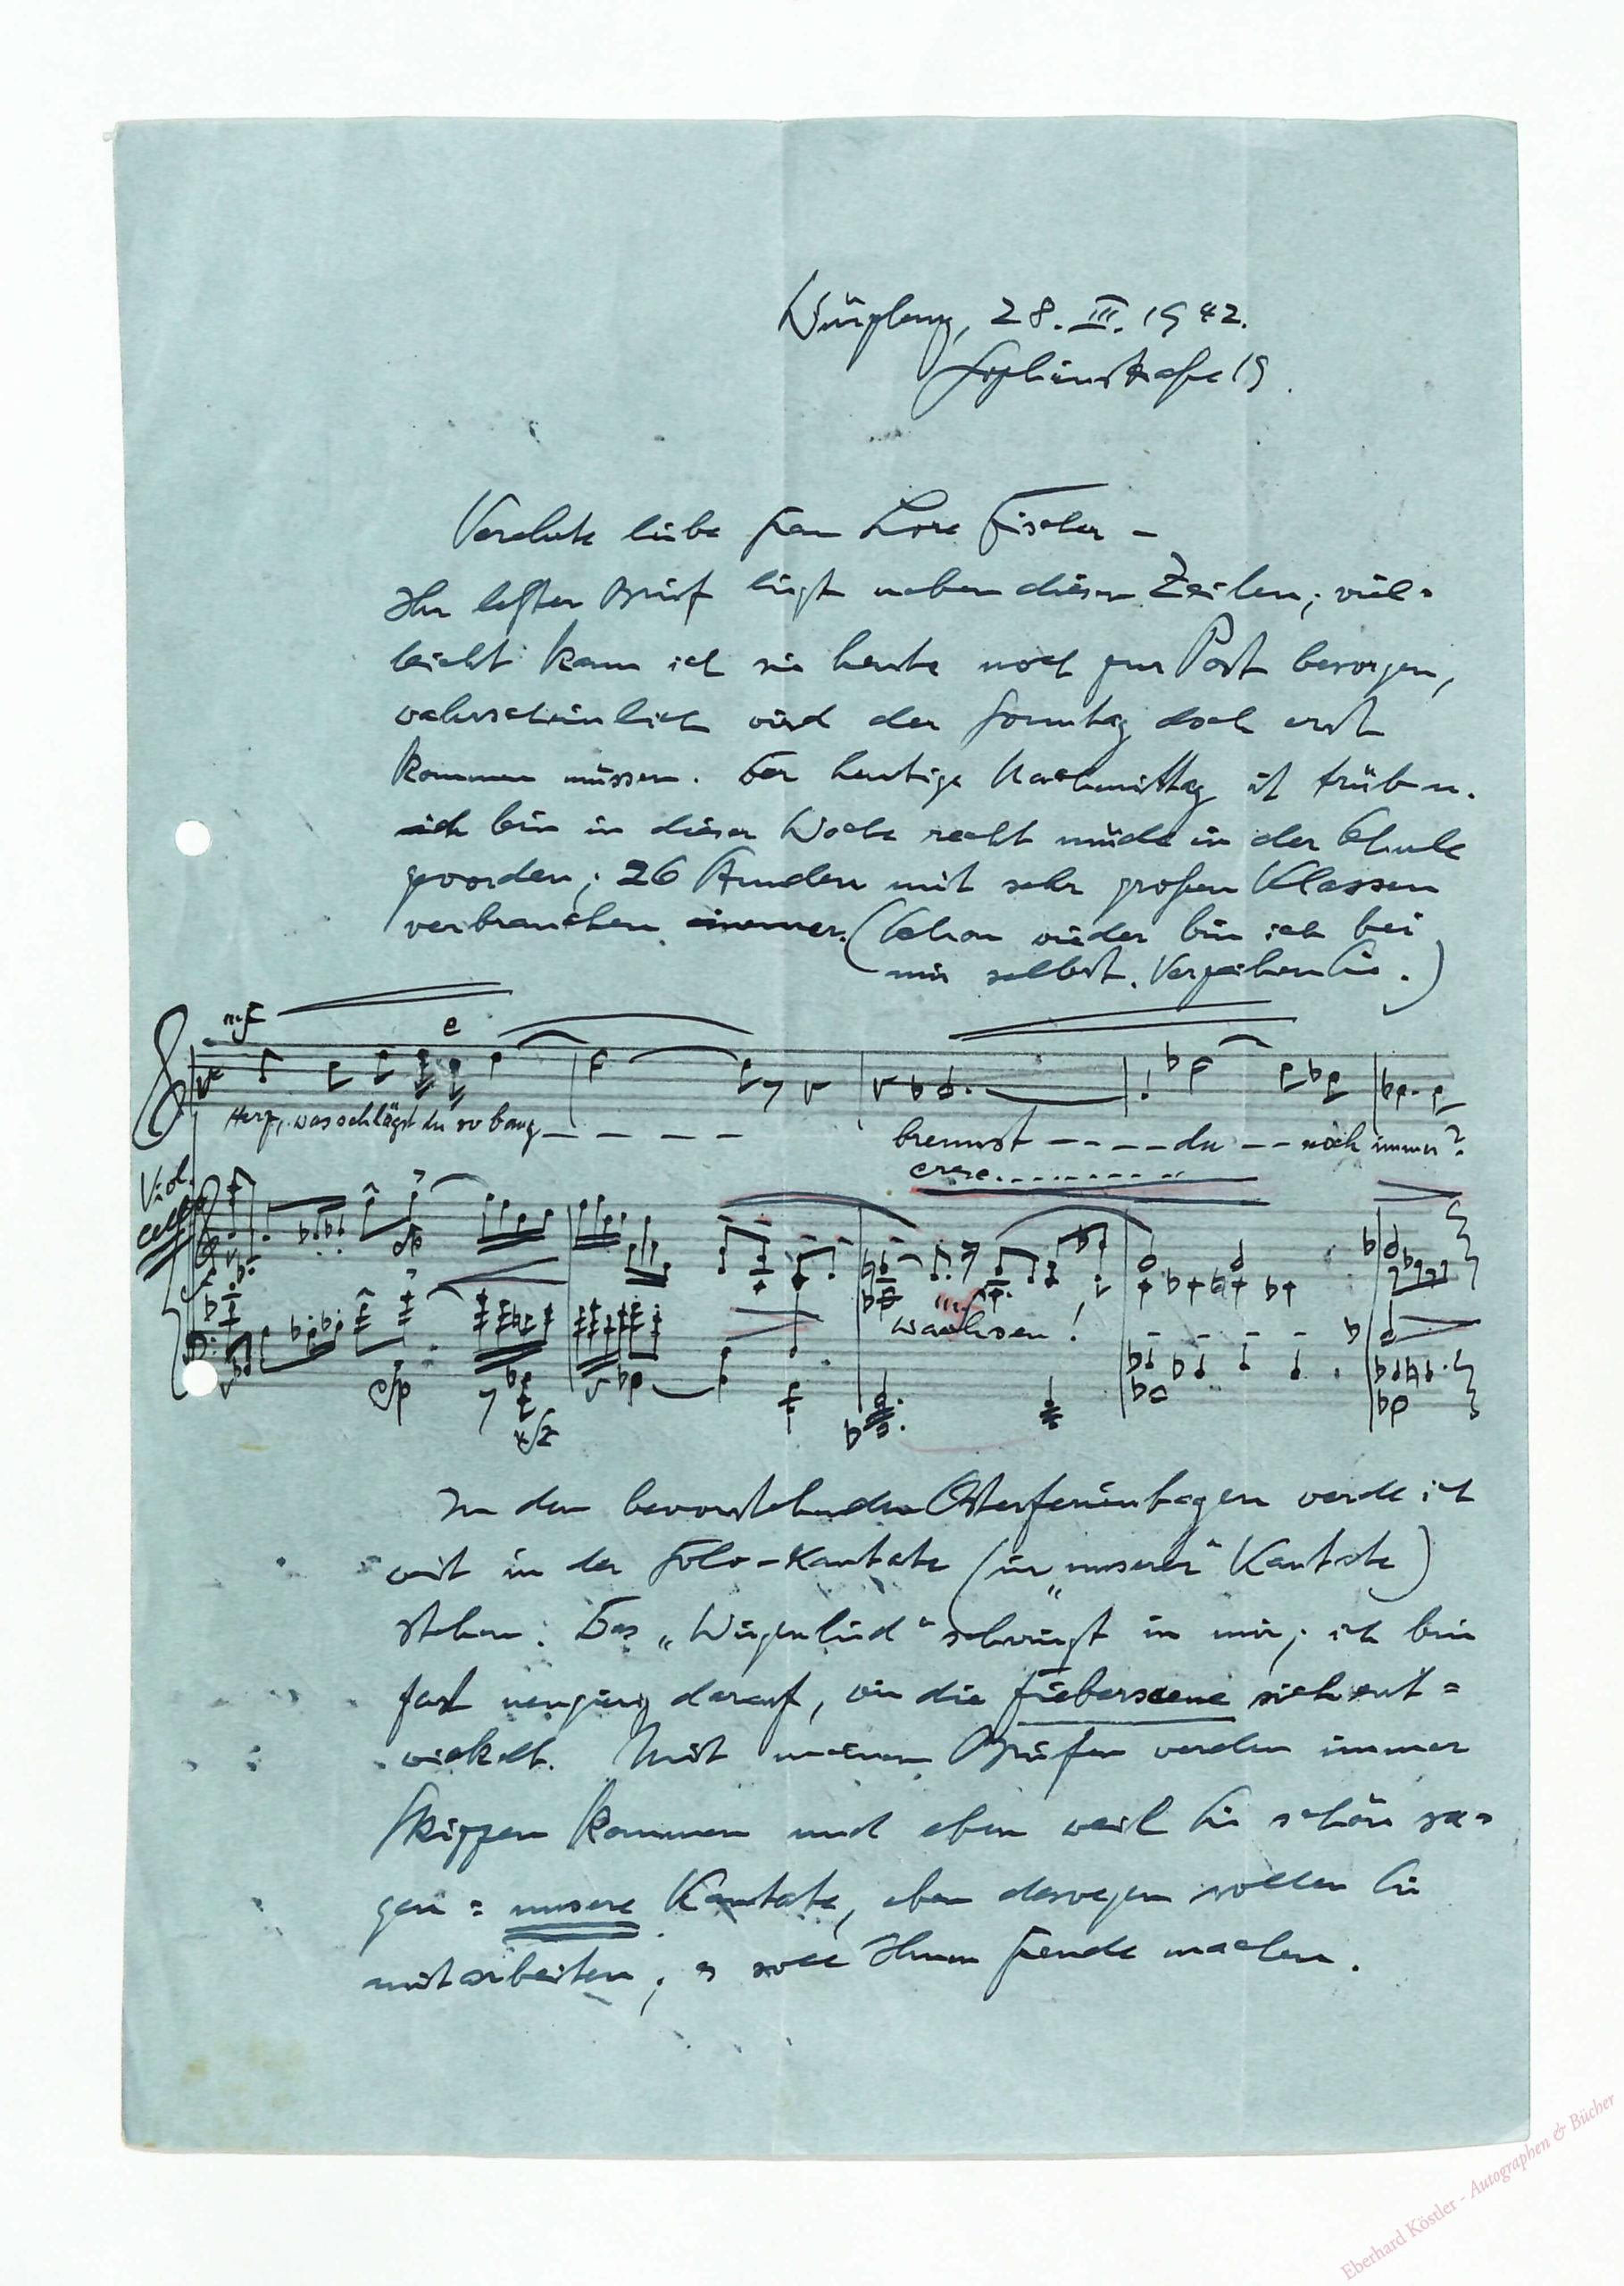 Würzburg, 28. III. 1942.
Sophienstraße 19.
Verehrte liebe Frau Lore Fischer –
Ihr letzter Brief liegt neben diesen Zeilen; viel=
leicht kann ich sie heute noch zur Post besorgen,
wahrscheinlich wird der Sonntag doch erst
kommen müssen. Der heutige Nachmittag ist
ich bin in dieser Woche recht müde in der Schule
geworden; 26 Stunden mit sehr großen Klassen
verbrauchen (Schon wieder bin ich bei
mir selbst. Verzeihen Sie.)
mf
e
Herz, was schlägst du so bang – – – –
brennst – – – – du – – noch immer?
cresc. . . . . . . . .
Viol.
Cello
mf
wachsen!
sfp
sfz
In den bevorstehenden Osterferientagen werde ich
weit in der Solo-Kantate (in „unserer“ Kantate)
stehen: Das „Wiegenlied“ schwingt in mir; ich bin
fast neugierig darauf, wie die Fieberscene sich ent=
wickelt. Mit meinen Briefen werden immer
Skizzen kommen und eben weil Sie schön sa=
gen = unsere Kantate, eben deswegen sollen Sie
mitarbeiten; es soll Ihnen Freude machen.
Eberhard Köstler - Autographen & Bücher